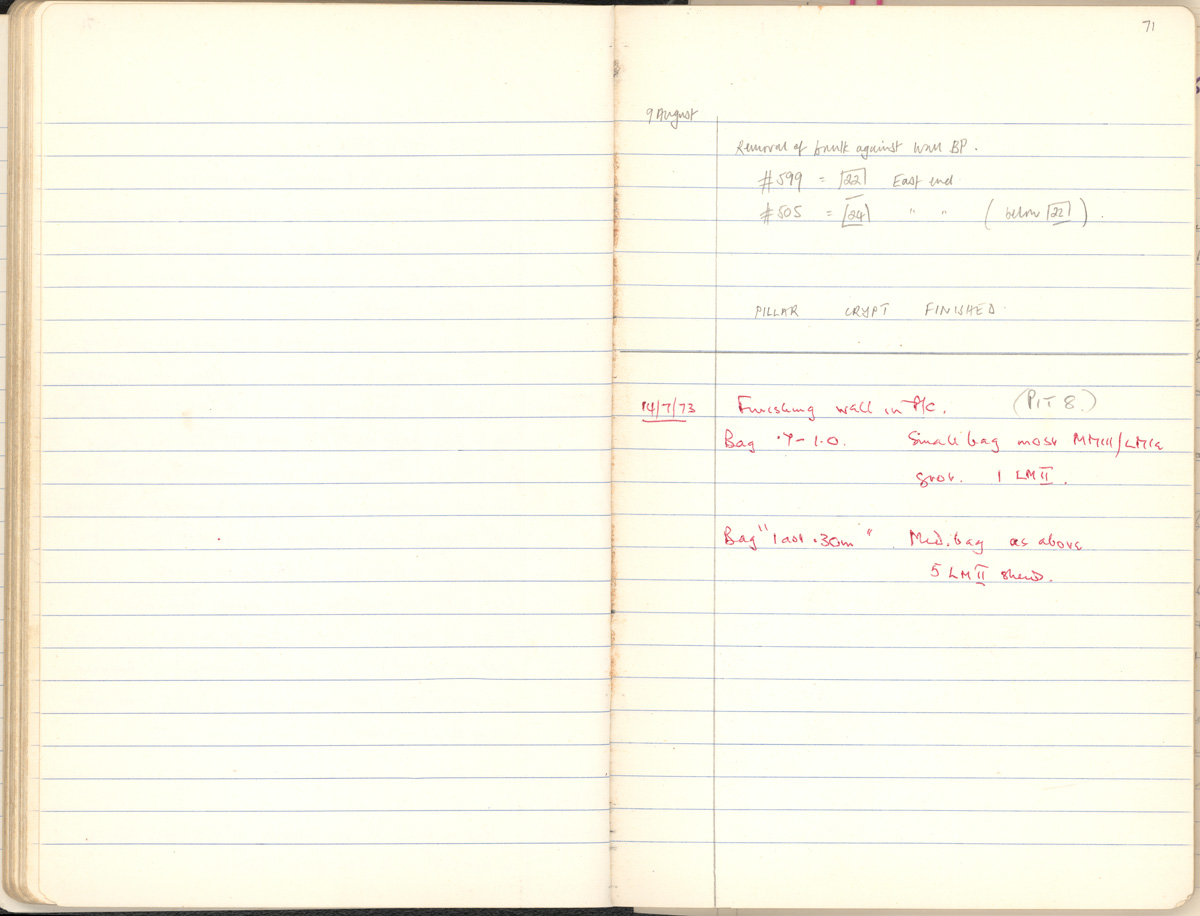 71
9 August
Removal of baulk against Wall BP.
#599 = 22 East end
#505 = 24 " " (below 22).
PILLAR CRYPT FINISHED.
14/7/73 Finishing wall in P/C. (PIT 8.)
Bag .7-1.0. Small bag most MMIII/LMIA
1 LM II.
Bag "last .30m". Med. bag as above
5 LM II sherds.